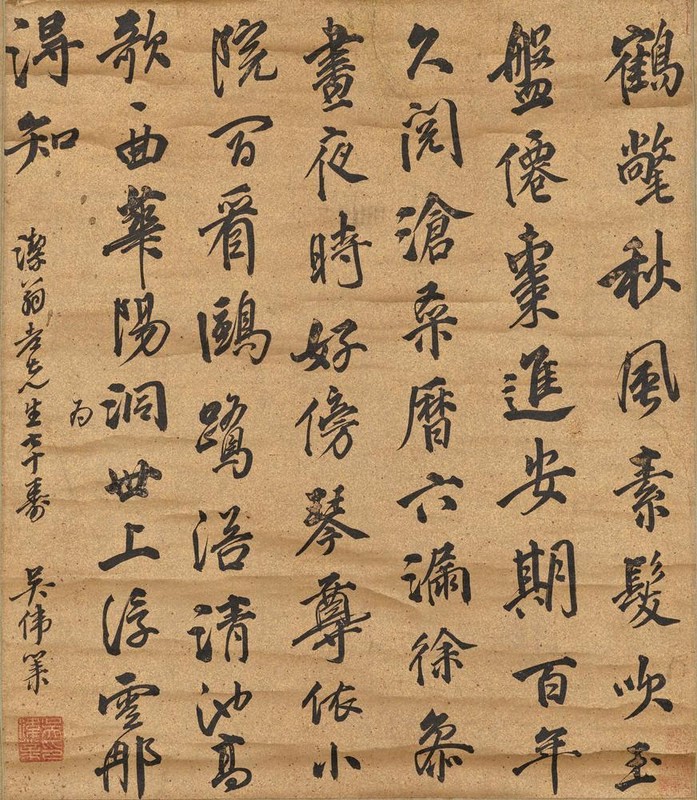 鶴氅秋風素髮吹玉
盤僊棗進安期百年
久閱滄桑曆六漏徐叅
晝夜時好傍琴尊依小
院閒看鷗鷺浴清池高
歌一曲華陽洞世上浮雲那
得知
為
潔翁老先生七十壽 吳偉業